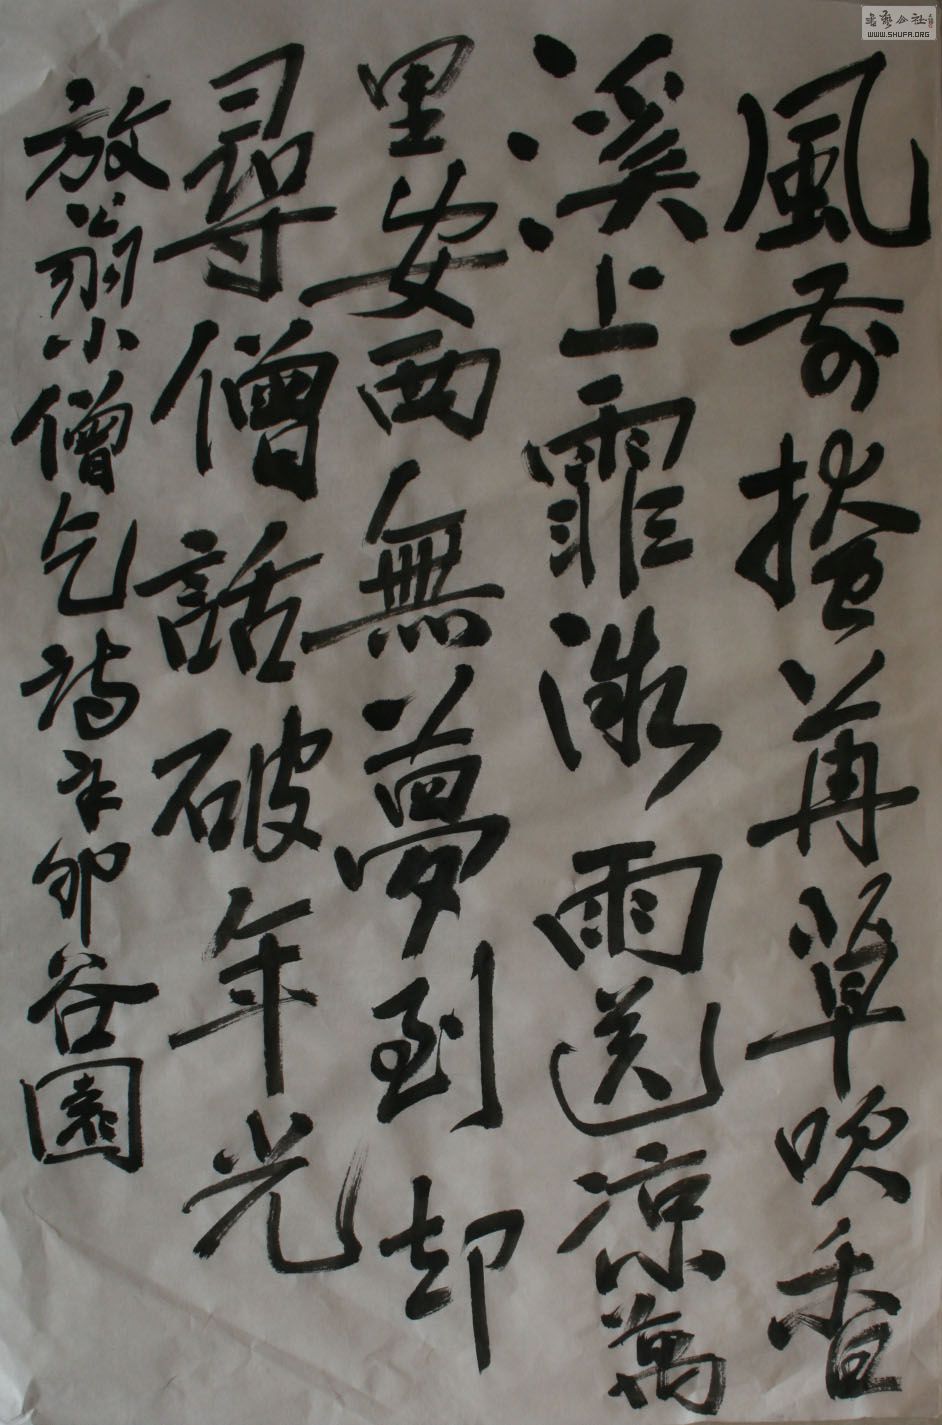 風前搔苒草吹香
溪上霏微雨送涼萬
里安西無夢到却
尋僧話破年光
放翁小僧乞詩辛卯谷園
書藝公社
WWW.SHUFA.ORG